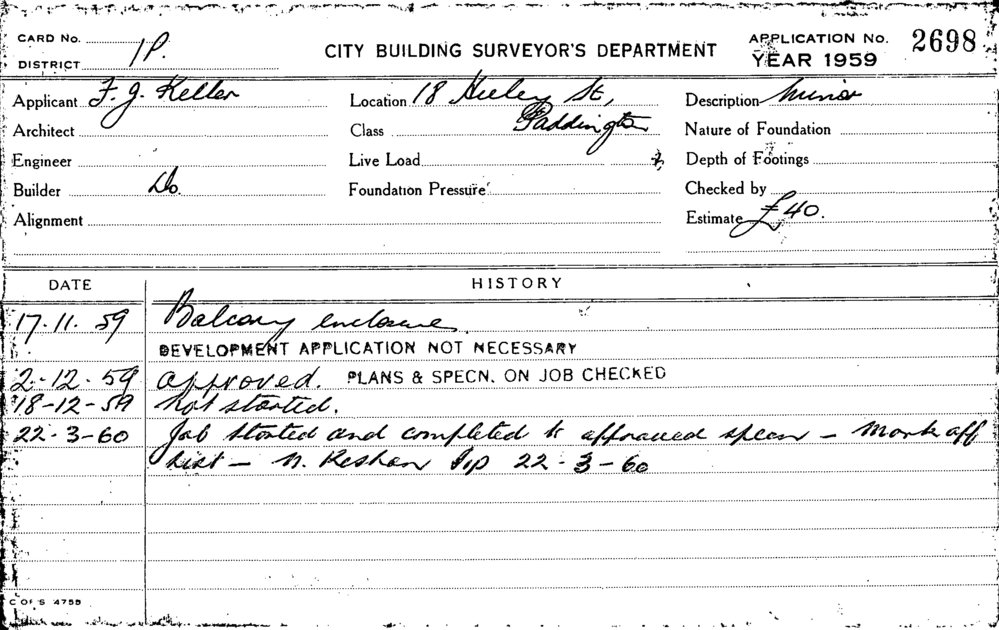 CARD No.
DISTRICT 1P.
CITY BUILDING SURVEYOR'S DEPARTMENT
APPLICATION No. 2698
YEAR 1959
Applicant F. J. Keller
Location 18 Heeley St,
Paddington
Description Minor
Architect
Class
Nature of Foundation
Engineer
Live Load
Depth of Footings
Builder Do.
Foundation Pressure
Checked by
Alignment
Estimate £40.
DATE HISTORY
17.11.59 Balcony enclosure
DEVELOPMENT APPLICATION NOT NECESSARY
2-12-59 approved. PLANS & SPECN. ON JOB CHECKED
18-12-59 not started.
22-3-60 Job started and completed to approved specn - Mark off
list - 22-3-60
C OF S 4755